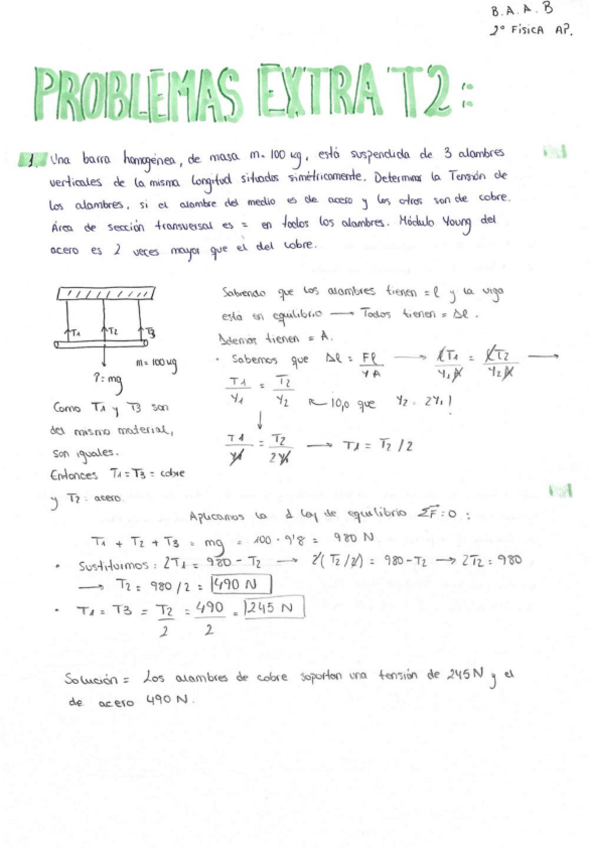 B.A.A.B
2º FÍSICA AP.
PROBLEMAS EXTRA T2:
1. Una barra homogénea, de masa m=100 kg, está suspendida de 3 alambres
verticales de la misma longitud situados simétricamente. Determinar la Tensión de
los alambres, si el alambre del medio es de acero y los otros son de cobre.
Área de sección transversal es = en todos los alambres. Módulo Young del
acero es 2 veces mayor que el del cobre.
T1 T2 T3
m=100kg
P=mg
Como T1 y T3 son
del mismo material,
son iguales.
Entonces T1=T3= cobre
y T2= acero.
Sabiendo que los alambres tienen = l y la viga
está en equilibrio → Todos tienen = Δl.
Además tienen = A.
• Sabemos que Δl = Fl/YA → lT1/Y1A = lT2/Y2A →
T1/Y1 = T2/Y2 ↖ ¡0,o que Y2=2Y1!
↓
T1/Y1 = T2/2Y1 → T1 = T2/2
Aplicamos la ley de equilibrio ΣF=0:
T1 + T2 + T3 = mg = 100 · 9'8 = 980 N
• Sustituimos: 2T1 = 980 - T2 → 2(T2/2) = 980-T2 → 2T2=980
→ T2 = 980/2 = 490 N
• T1 = T3 = T2/2 = 490/2 = 245 N
Solución = Los alambres de cobre soportan una tensión de 245 N y el
de acero 490 N.